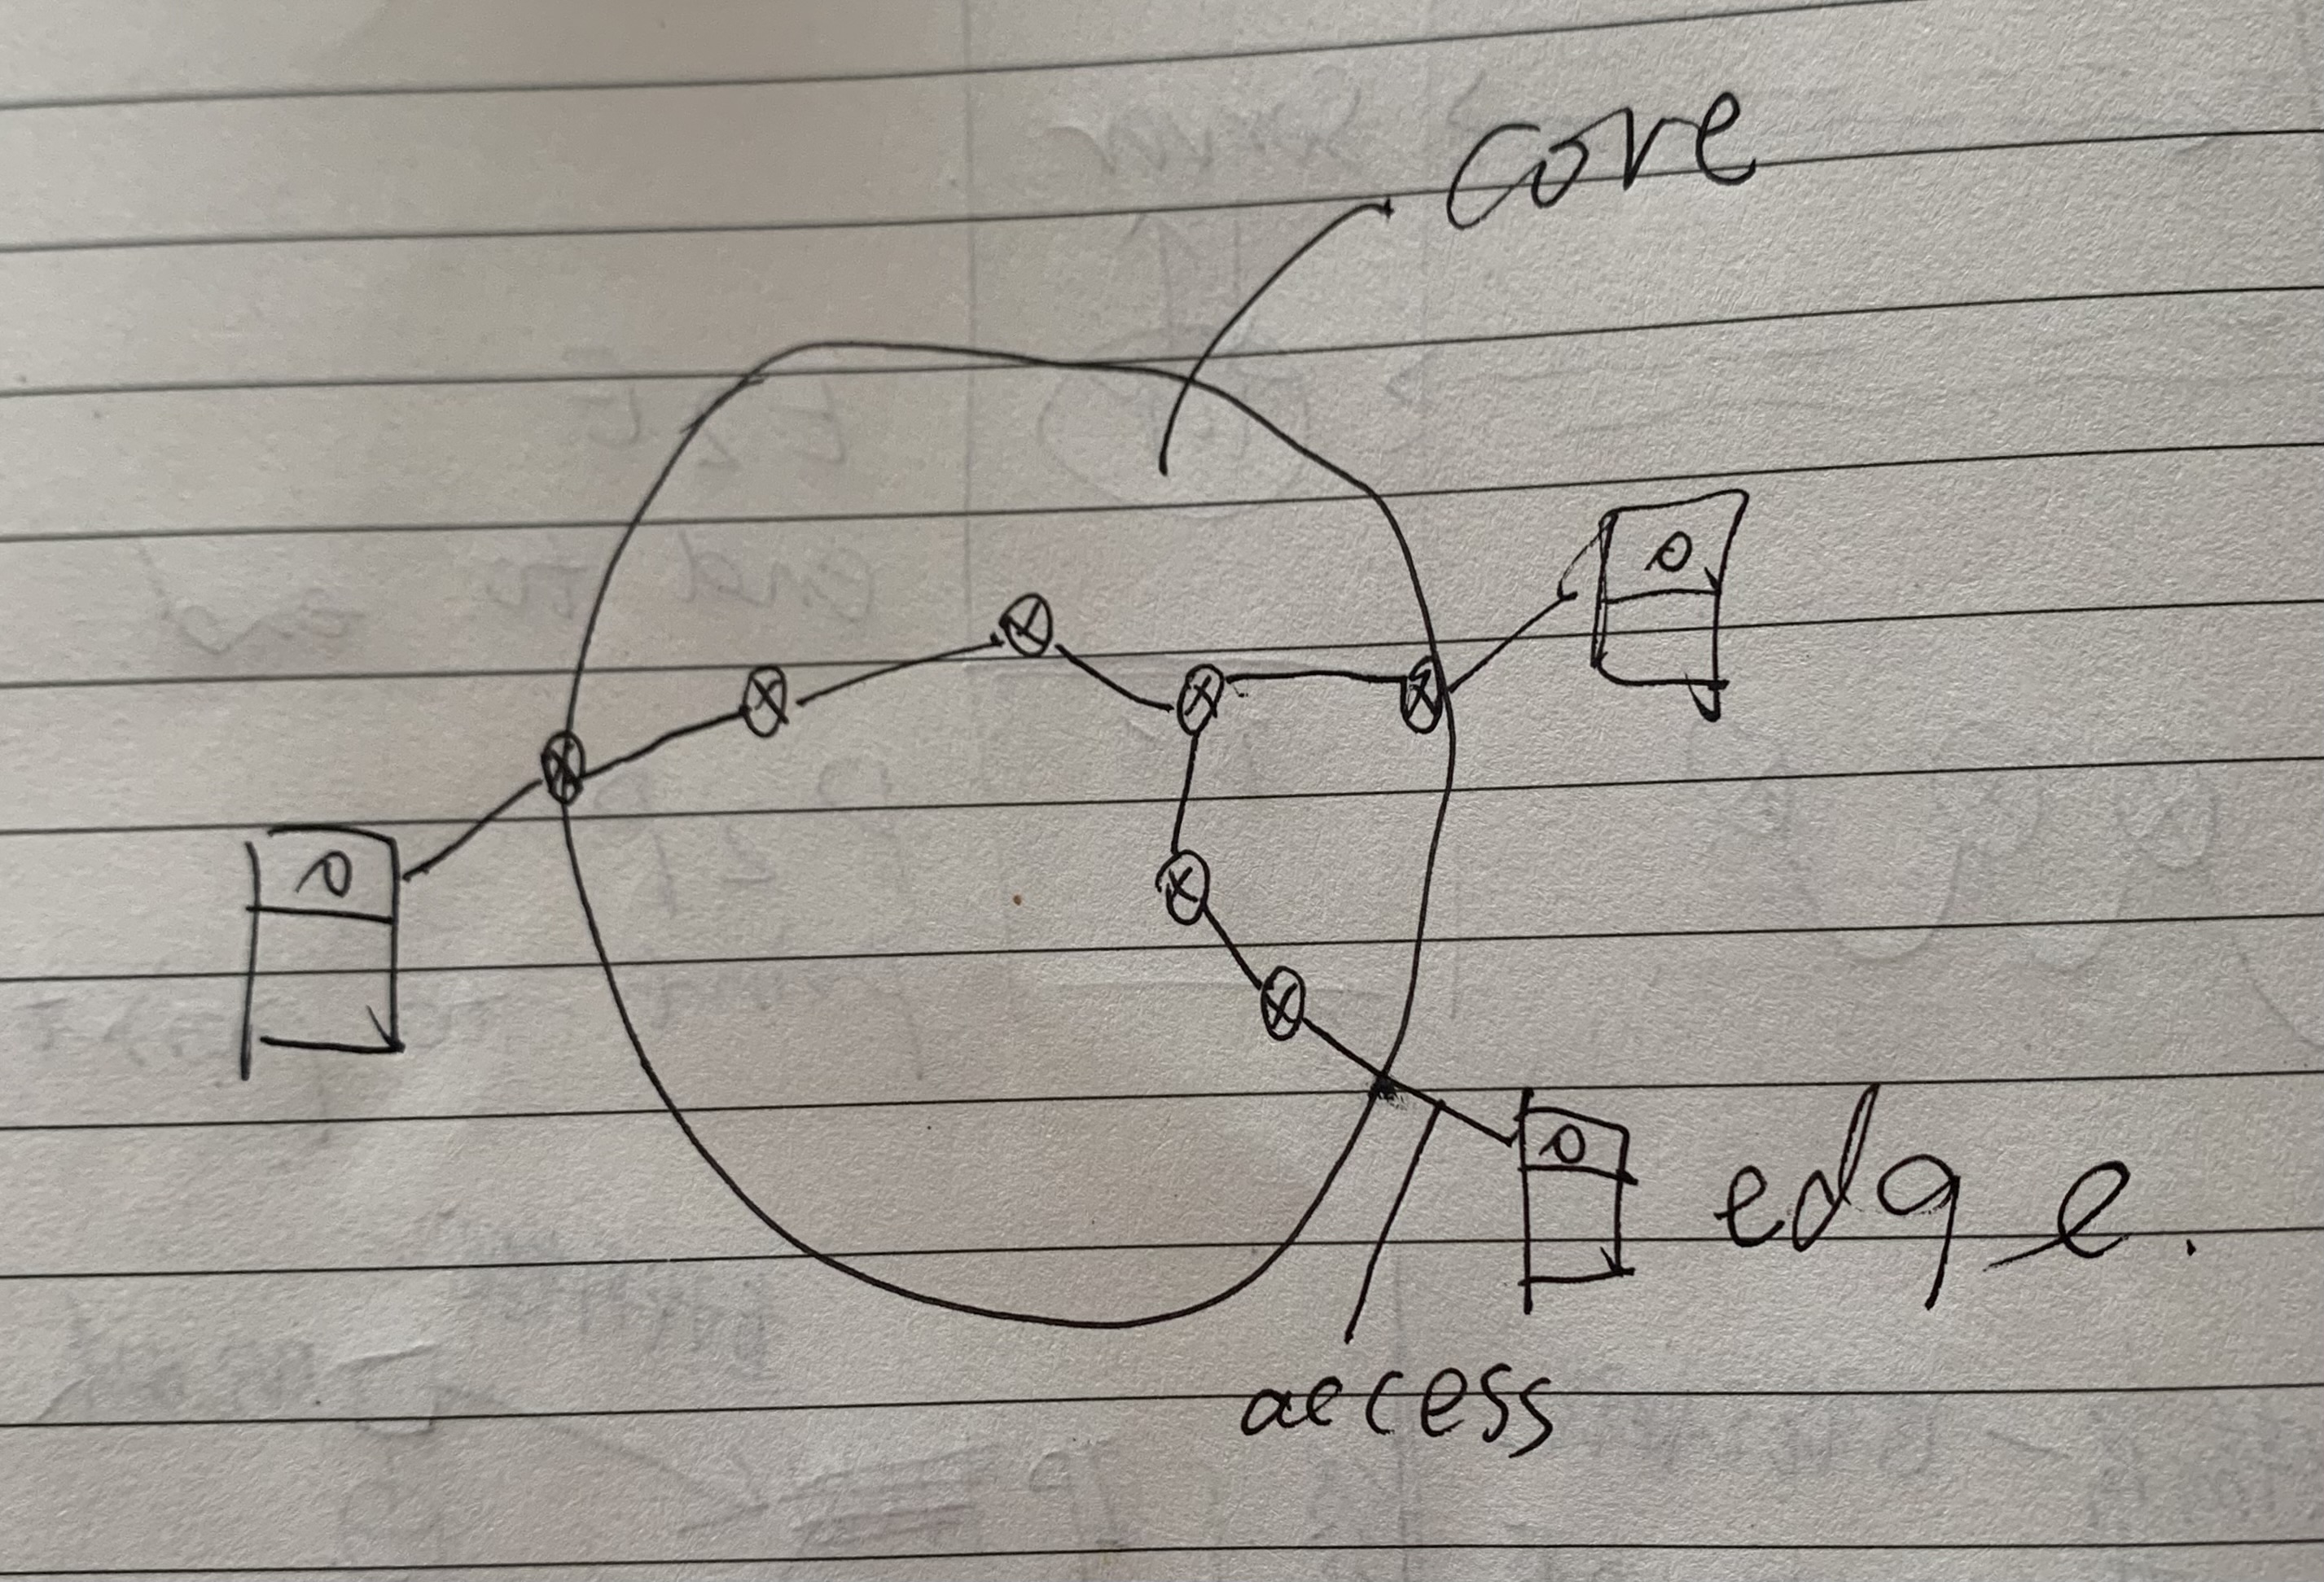 core
edge.
access